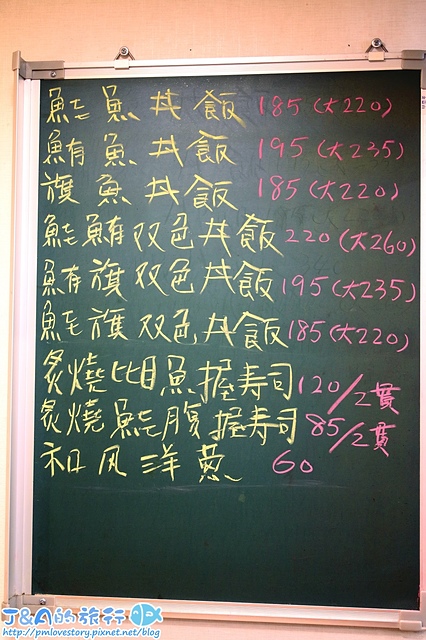 鮭魚丼飯 185(大220)
鮪魚丼飯 195(大235)
旗魚丼飯 185(大220)
鮭鮪双色丼飯 220(大260)
鮪旗双色丼飯 195(大235)
鮭旗双色丼飯 185(大220)
炙燒比目魚握寿司 120/2貫
炙燒鮭腹握寿司 85/2貫
和风洋蔥 60
J&A的旅行
http://pmlovestory.pixnet.net/blog